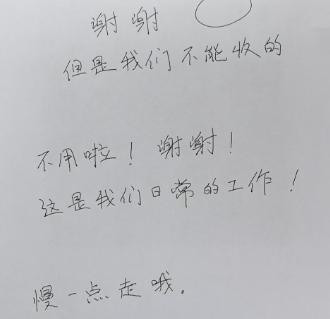 谢谢
但是我们不能收的
不用啦！谢谢！
这是我们日常的工作！
慢一点走哦。